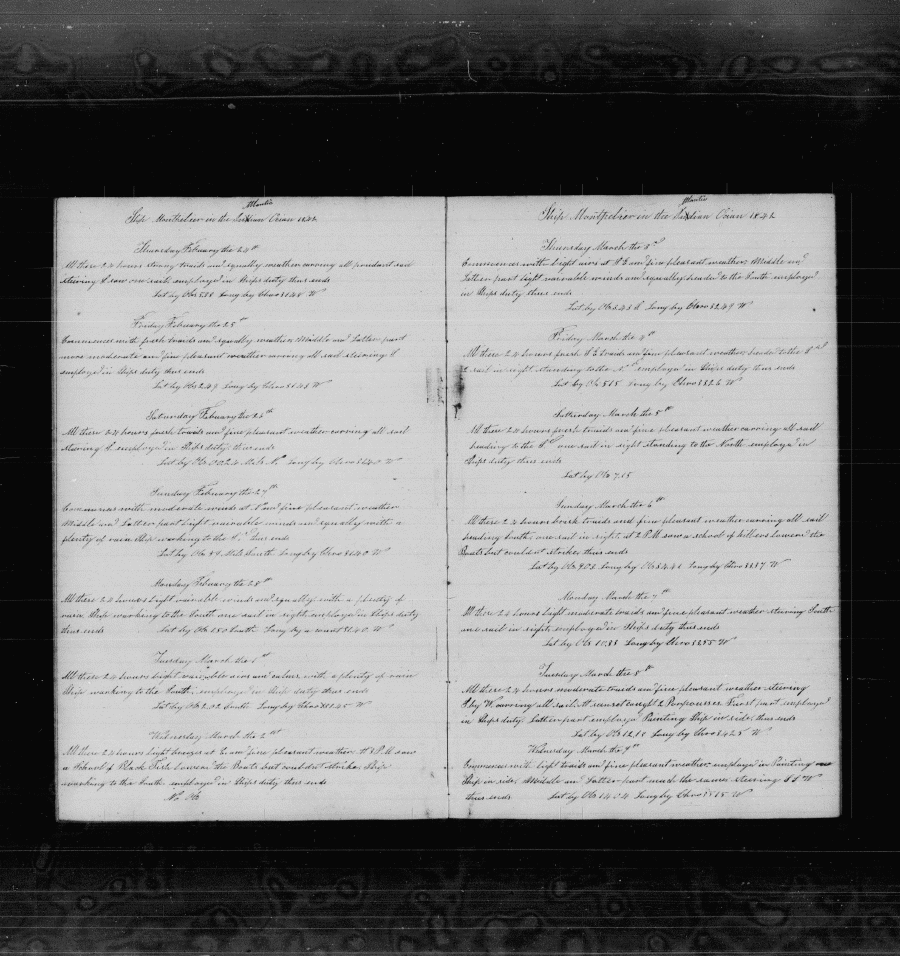 Atlantic
Ship Montpelier in the Indian Ocian 1842
Thursday February the 24th
All these 24 hours strong traids and squally weather carring all pendant sail
steering S saw one sail employed in Ships duty thus ends
Lat by Obs Long by Chro W
Friday February the 25th
Commences with fresh traids and squally weather Middle and Latter part
more moderate and fine pleasant weather carring all sail steering S
employed in Ships duty thus ends
Lat by Obs 2.49 Long by Chro W
Saturday February the 26th
All these 24 hours fresh traids and fine pleasant weather carring all sail
stearing S employed in Ships duty thus ends
Lat by Obs 00.24 Mils N Long by Chro W
Sunday February the 27th
Commences with moderate winds at E and fine pleasant weather
Middle and Latter part Light vairable winds and squally with a
plenty of rain Ship working to the S thus ends
Lat by Obs Mils South Long by Chro W
Monday February the 28th
All these 24 hours Light vairable winds and squally with a plenty of
rain Ship working to the South one sail in sight employed in Ships duty
thus ends Lat by Obs South Long by W
Tuesday March the 1st
All these 24 hours Light vairable airs and calms with a plenty of rain
Ship working to the South employed in Ship duty thus ends
Lat by Obs South Long by Chro W
Wednesday March the 2nd
All these 24 hours Light breezes at E and fine pleasant weather At PM saw
a School of Black Fish Lowerd the Boats but couldnt strike Ship
working to the South employed in Ships duty thus ends
No Obs
Atlantic
Ship Montpelier in the Indian Ocian 1842
Thursday March the 3rd
Commences with Light airs at SE and fine pleasant weather Middle and
Latter part Light vairable winds and squally headed to the South employed
in Ships duty thus ends
Lat by Obs Long by Chro W
Friday March the 4th
All these 24 hours fresh SE traids and fine pleasant weather headed to the
sail in sight standing to the employed in Ships duty thus ends
Lat by Obs 5.15 Long by Chro W
Satturday March the 5th
All these 24 hours fresh traids and fine pleasant weather carring all sail
heading to the one sail in sight standing to the North employed in
Ships duty thus ends
Lat by Obs 7.15
Sunday March the 6th
All these 24 hours brisk traids and fine pleasant weather carring all sail
heading South one sail in sight at 2 PM saw a school of killers Lowerd the
Boats but couldnt strike thus ends
Lat by Obs Long by Obs Long by Chro W
Monday March the 7th
All these 24 hours Light moderate traids and fine pleasant weather steering South
one sail in sight employed in Ships duty thus ends
Lat by Obs 10.38 Long by Chro W
Tuesday March the 8th
All these 24 hours moderate traids and fine pleasant weather steering
S by W carring all sail At sunset caught 2 Porpousses First part employed
in Ships duty Latter part employed Painting Ship in side thus ends
Lat by Obs Long by Chro W
Wednesday March the 9th
Commences with Light traids and fine pleasant weather employed in Painting
Ship in side Middle and Latter part much the same steering W
thus ends Lat by Obs 14.04 Long by Chro W